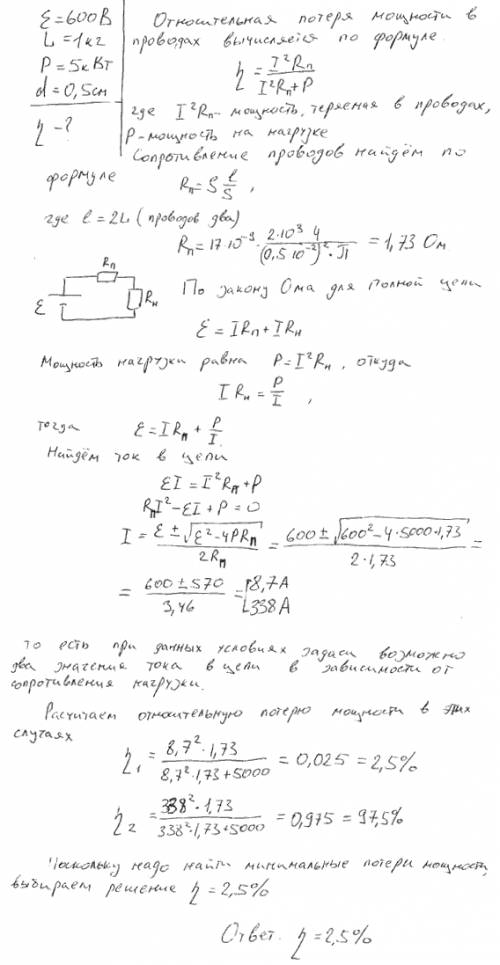 ℰ=600В
L=1кг
P=5кВт
d=0,5см
η-?
Относительная потеря мощности в
проводах вычисляется по формуле.
η = I²Rп / (I²Rп+P)
где I²Rп- мощность, теряемая в проводах,
P-мощность на нагрузке
Сопротивление проводов найдём по
формуле Rп=ρ l/S ,
где l=2L (проводов два)
Rп=17·10⁻⁹· 2·10³ 4 / ((0,5 10⁻²)²·π) = 1,73 Ом
Rп
ℰ
Rн
По закону Ома для полной цепи
ℰ=IRп+IRн
Мощность нагрузки равна P=I²Rн, откуда
IRн = P/I ,
тогда ℰ=IRп + P/I.
Найдём ток в цепи
ℰI=I²Rп+P
RпI²-ℰI+P=0
I = (ℰ±√(ℰ²-4PRп)) / 2Rп = (600±√(600²-4·5000·1,73)) / (2·1,73) =
= (600±570) / 3,46 = [8,7А
338А
то есть при данных условиях задаси возможно
два значения тока в цепи в зависимости от
сопротивления нагрузки.
Расчитаем относительную потерю мощности в этих
случаях
η₁ = 8,7²·1,73 / (8,7²·1,73+5000) = 0,025 = 2,5%
η₂ = 338²·1,73 / (338²·1,73+5000) = 0,975 = 97,5%
Поскольку надо найти минимальные потери мощности,
выбираем решение η=2,5%
Ответ. η=2,5%